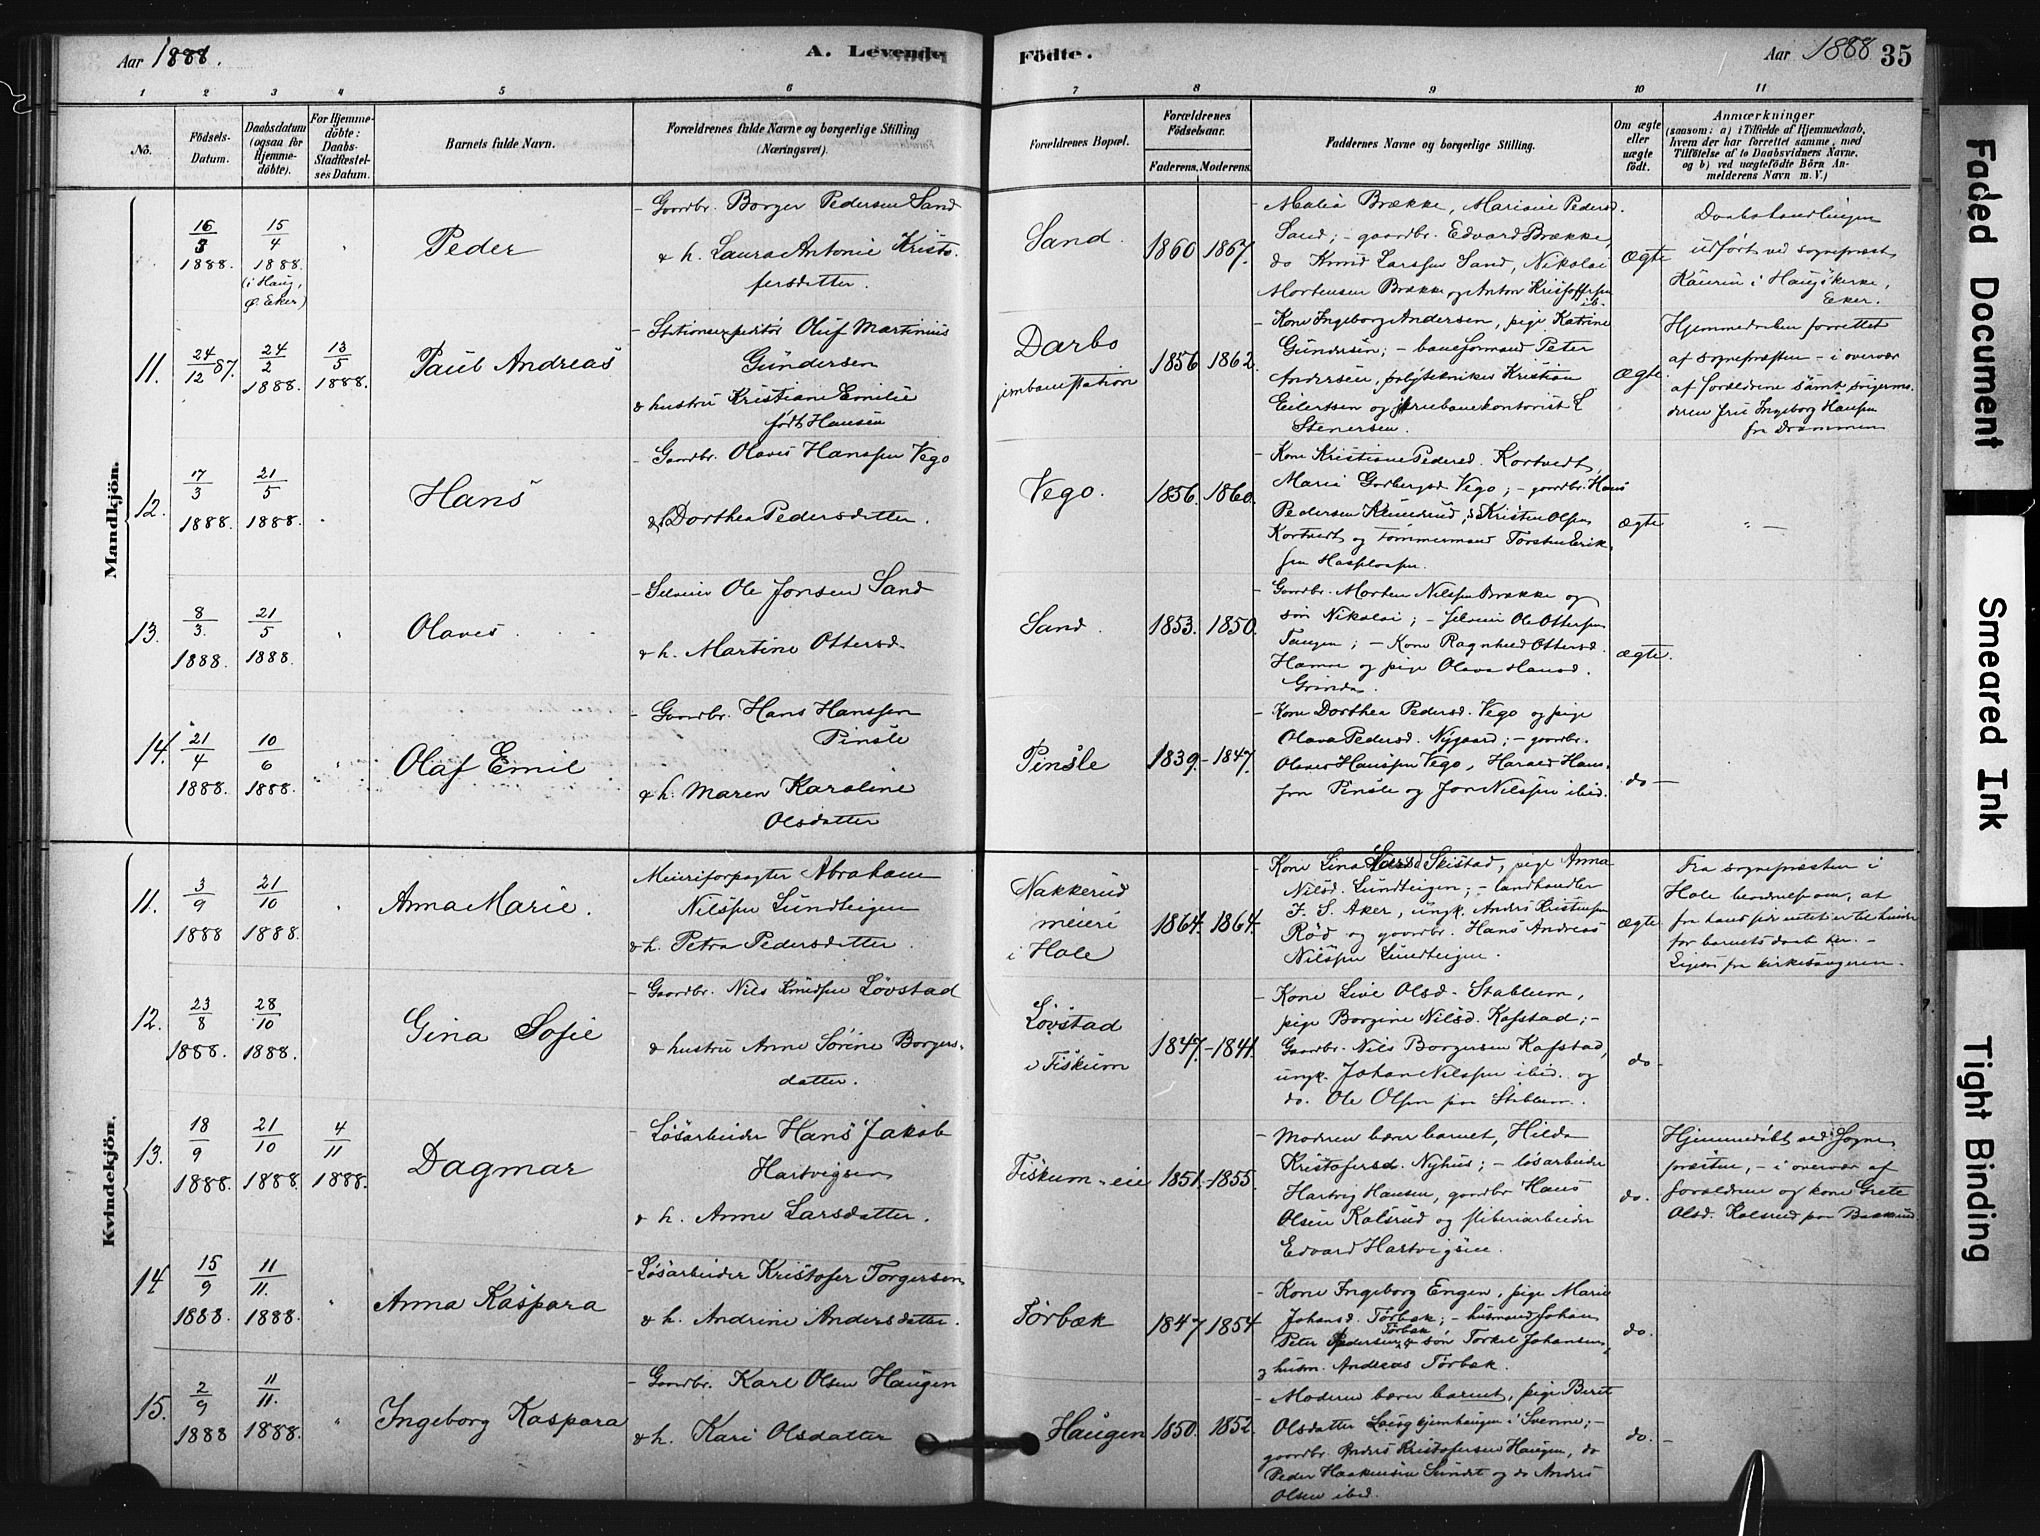 Aar 1888.
A. Levende
1 2 3 4 5 6
No.
Födsels-
Datum.
Daabsdatum
(ogsaa for
Hjemme-
döbte).
For Hjemme-
döbte:
Daabs-
Stadfestel-
ses Datum.
Barnets fulde Navn.
Forældrenes fulde Navne og borgerlige Stilling
(Næringsvei).
Födte.
Aar 1888 35
7 8 9 10 11
Forældrenes Bopæl.
Forældrenes
Födselsaar.
Faderens. Moderens.
Faddernes Navne og borgerlige Stilling.
Om ægte
eller
uægte
födt.
Anmærkninger
(saasom: a) i Tilfælde af Hjemmedaab,
hvem der har forrettet samme, med
Tilföielse af to Daabsvidners Navne,
og b) ved uægtefödte Börn An-
melderens Navn m. V.)
Mandkjön.
16/3 1888.
15/4 1888.
(i Haug,
Ø. Eker)
Peder
- Gaardbr. Borger Pedersen Sand
& h. Laura Antonie Kristo-
fersdatter.
Sand.
1860 1867.
- Malia Brække, Mariane Pedersd.
Sand; - gaardbr. Edvard Brække,
do Knud Larssen Sand, Nikolai
Mortensen Brække og Anton Kristoffersen
ib.
ægte
Daabshandlingen
udført ved sognepræst
Kaurin i Haugs kirke,
Eker.
11.
24/12 87.
24/2 1888.
13/5 1888.
Paul Andreas
- Stationsexpeditør Oluf Martinius
Gundersen
& hustru Kristiane Emilie
født Hansen
Darbo
jernbanestation
1856 1862.
- Kone Ingeborg Andersen, pige Katrine
Gundersen; - baneformand Peter
Andersen, polytekniker Kristian
Eilertsen og jernbanekontorist L
Stenersen.
ægte
Hjemmedaaben forrettet
af sognepræsten - i overvær
af forældrene samt svigermo-
deren fru Ingeborg Hansen
fra Drammen
12.
17/3 1888.
21/5 1888.
Hans
- Gaardbr. Olaves Hanssen Vego
& h. Dorthea Pedersdatter.
Vego.
1856. 1860.
- Kone Kristiane Pedersd. Kortvedt,
Maria Gorbergsd Vego; - gaardbr. Hans
Pedersen Knudrud, do Kristen Olsen
Kortvedt og tømmermand Torsten Erik-
sen
ægte
13.
8/3. 1888.
21/5 1888.
Olaves
- Selveier Ole Jonsen Sand
& h. Martine Ottersd.
Sand.
1853. 1850.
- Gaardbr. Morten Nilssen Brække og
søn Nikolai; - selveier Ole Ottersen
Tangen; - Kone Ragnhild Ottersd.
Hamre og pige Olava Hansd.
Grinda.
ægte.
14.
21/4 1888.
10/6 1888.
Olaf Emil
- Gaardbr. Hans Hanssen
Pinsle
& h. Maren Karoline
Olsdatter
Pinsle
1839. - 1847.
- Kone Dorthea Pedersd. Vego og pige
Olava Pedersd. Nygaard; - gaardbr.
Olaves Hanssen Vego, Harald Hans-
sen Pinsle og Jon Nilssen ibid.
do -
Kvindekjön.
11.
3/9 1888
21/10 1888.
Anna Marie.
Meieriforpagter Abraham
Nilssen Lundteigen
& h. Petra Pedersdatter.
Nakkerud
meieri
i Hole
1864. - 1864.
- Kone Lina Larsd Skistad, pige Anna
Nilsd. Lundteigen; - landhandler
F. S. Aker, ungk. Anders Kristensen
Rød og gaardbr. Hans Andreas
Nilssen Lundteigen.
ægte
Fra sognepræsten i
Hole at
fra hans side intet er til hinder
for barnets daab her. -
Ligesaa fra kirkesangeren. -
12.
23/8 1888.
28/10 1888.
Gina Sofie
- Gaardbr. Nils Knudsen Løvstad
& hustru Anne Sørine Borgers-
datter.
Løvstad
i Fiskum
1847. - 1841.
- Kone Live Olsd. Stablum,
pige Borgine Nilsd. Kafstad; -
Gaardbr. Nils Borgersen Kafstad,
ungk. Johan Nilssen ibid. og
do. Ole Olsen paa Stablum.
do -
13.
18/9 1888.
21/10 1888.
4/11 1888.
Dagmar
- Løsarbeider Hans Jakob
Hartvigsen
& h. Anne Larsdatter.
Fiskum-eie
1851. - 1855.
- Moderen bærer barnet, Hilda
Kristofersd. Nyhus; - løsarbeider
Hartvig Hansen, gaardbr Hans
Olsen Kalsrud og sliberiarbeider
Edvard Hartvigsen.
do.
Hjemmedøbt ved Sogne-
præsten, - i overvær af
forældrene og kone Grete
Olsd. Kalsrud paa
14
15/9 1888.
11/11. 1888.
Anna Kaspara
- Løsarbeider Kristofer Torgersen
& h. Andrine Andersdatter.
Tørbæk
1847 1854
- Kone Ingeborg Engen, pige Marie
Johansd. Tørbæk; - husmand Johan
Peter Pedersen Tørbæk & søn Torkel Johansen,
og husm. Andreas Tørbæk.
do.
15.
2/9 1888
11/11. 1888.
Ingeborg Kaspara
- Gaardbr. Karl Olsen Haugen
& h. Kari Olsdatter
Haugen
1850. 1852.
- Moderen bærer barnet, pige Berit
Olsdatter i Svenne; -
gaardbr. Anders Kristofersen Haugen, do
Peder Haakensen Sundet og do Anders
Olsen ibid.
do. -
Faded Document
Smeared Ink
Tight Binding